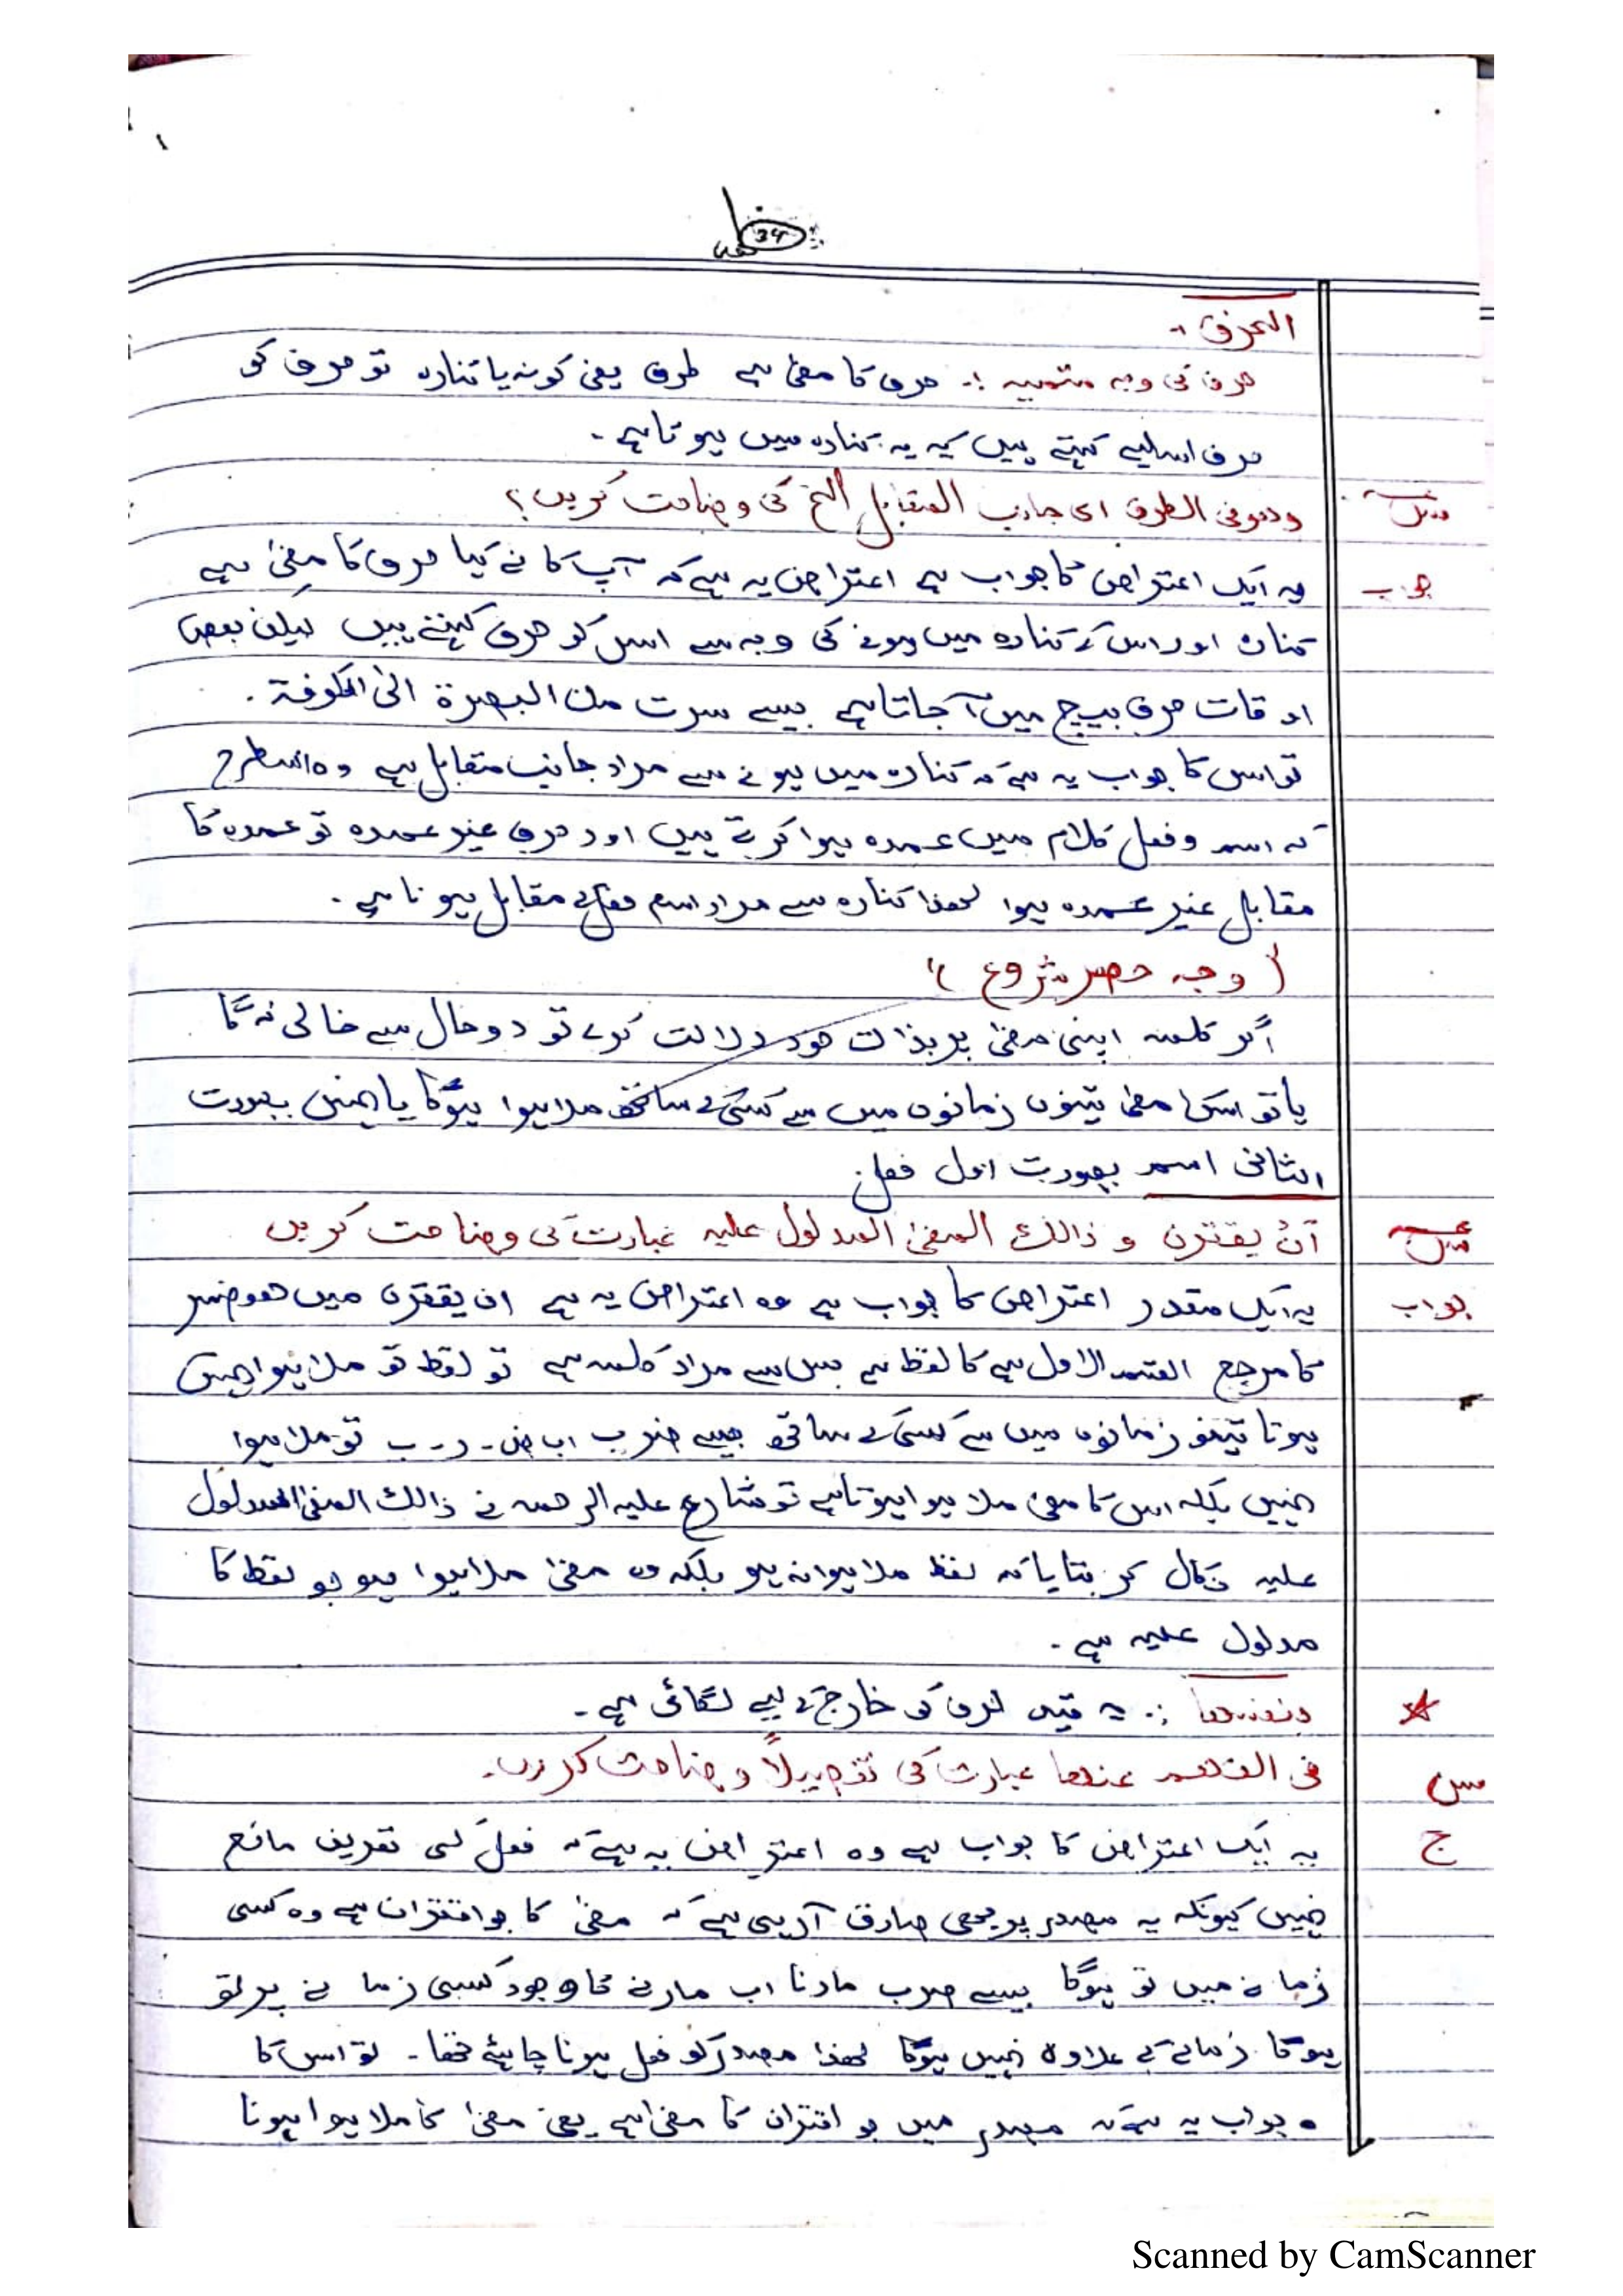 34
الحرف :-
حرف کی وجہ متسمیہ :۔ حرف کا معنیٰ ہے طرف یعنی کونہ یا کنارہ تو حرف کو
حرف اسلیے کہتے ہیں کہ یہ کنارہ میں ہوتا ہے ۔
وھوفی الطرف ای جانب المتقابل الخ کی وضاحت کریں؟
جواب یہ ایک اعتراض کا جواب ہے اعتراض یہ ہے کہ آپ کا نے کہا حرف کا معنیٰ ہے
کنارہ اور اس کے کنارہ میں ہونے کی وجہ سے اس کو حرف کہتے ہیں لیکن بعض
اوقات حرف بیچ میں آ جاتا ہے جیسے سرت من البصرۃ الیٰ الکوفۃ ۔
تو اس کا جواب یہ ہے کہ کنارہ میں ہونے سے مراد جانب متقابل ہے وہ اسطرح
کہ اسم و فعل کلام میں عمدہ ہوا کرتے ہیں اور حرف غیر عمدہ تو عمدہ کا
مقابل غیر عمدہ ہوا لھذا کنارہ سے مراد اسم فعل کے مقابل ہونا ہے ۔
( وجہ حصر شروع )
اگر کلمہ اپنی معنیٰ پر بذات خود دلالت کرے تو دو حال سے خالی نہ ہوگا
یا تو اسکا معنیٰ تینوں زمانوں میں سے کسی کے ساتھ ملا ہوا ہوگا یا نہیں بصورت
الثانی اسم بصورت اول فعل
س أن یقترن و ذالک المعنیٰ المدلول علیہ عبارت کی وضاحت کریں
جواب یہ ایک مقدر اعتراض کا جواب ہے وہ اعتراض یہ ہے ان یقترن میں ھو ضمیر
کا مرجع القسم الاول ہے کا لفظ ہے جس سے مراد کلمہ ہے تو لفظ تو ملا ہوا نہیں
ہوتا تینو زمانوں میں سے کسی کے ساتھ جیسے ضرب اب ض ۔ ر ۔ ب تو ملا ہوا
نہیں بلکہ اس کا معنیٰ ملا ہوا ہوتا ہے تو شارح علیہ الرحمہ نے ذالک المعنیٰ المدلول
علیہ نکال کر بتایا کہ لفظ ملا ہوا نہ ہو بلکہ وہ معنیٰ ملا ہوا ہو جو لفظ کا
مدلول علیہ ہے ۔
بنفسھا :۔ یہ قید حرف کو خارج کے لیے لگائی ہے ۔
س فی الفھم عنھا عبارت کی تفصیلاً وضاحت کریں ۔
ج یہ ایک اعتراض کا جواب ہے وہ اعتراض یہ ہے کہ فعل کی تعریف مانع
نہیں کیونکہ یہ مصدر پر بھی صادق آ رہی ہے کہ معنیٰ کا جو اقتران ہے وہ کسی
زمانہ میں تو ہوگا جیسے ضرب مارنا اب مارنے کا وجود کسی زمانے پر تو
ہوگا زمانے کے علاوہ نہیں ہوگا لھذا مصدر کو فعل ہونا چاہئے تھا ۔ تو اس کا
جواب یہ ہے کہ مصدر میں جو اقتران کا معنیٰ ہے یعنی معنیٰ کا ملا ہوا ہونا
Scanned by CamScanner